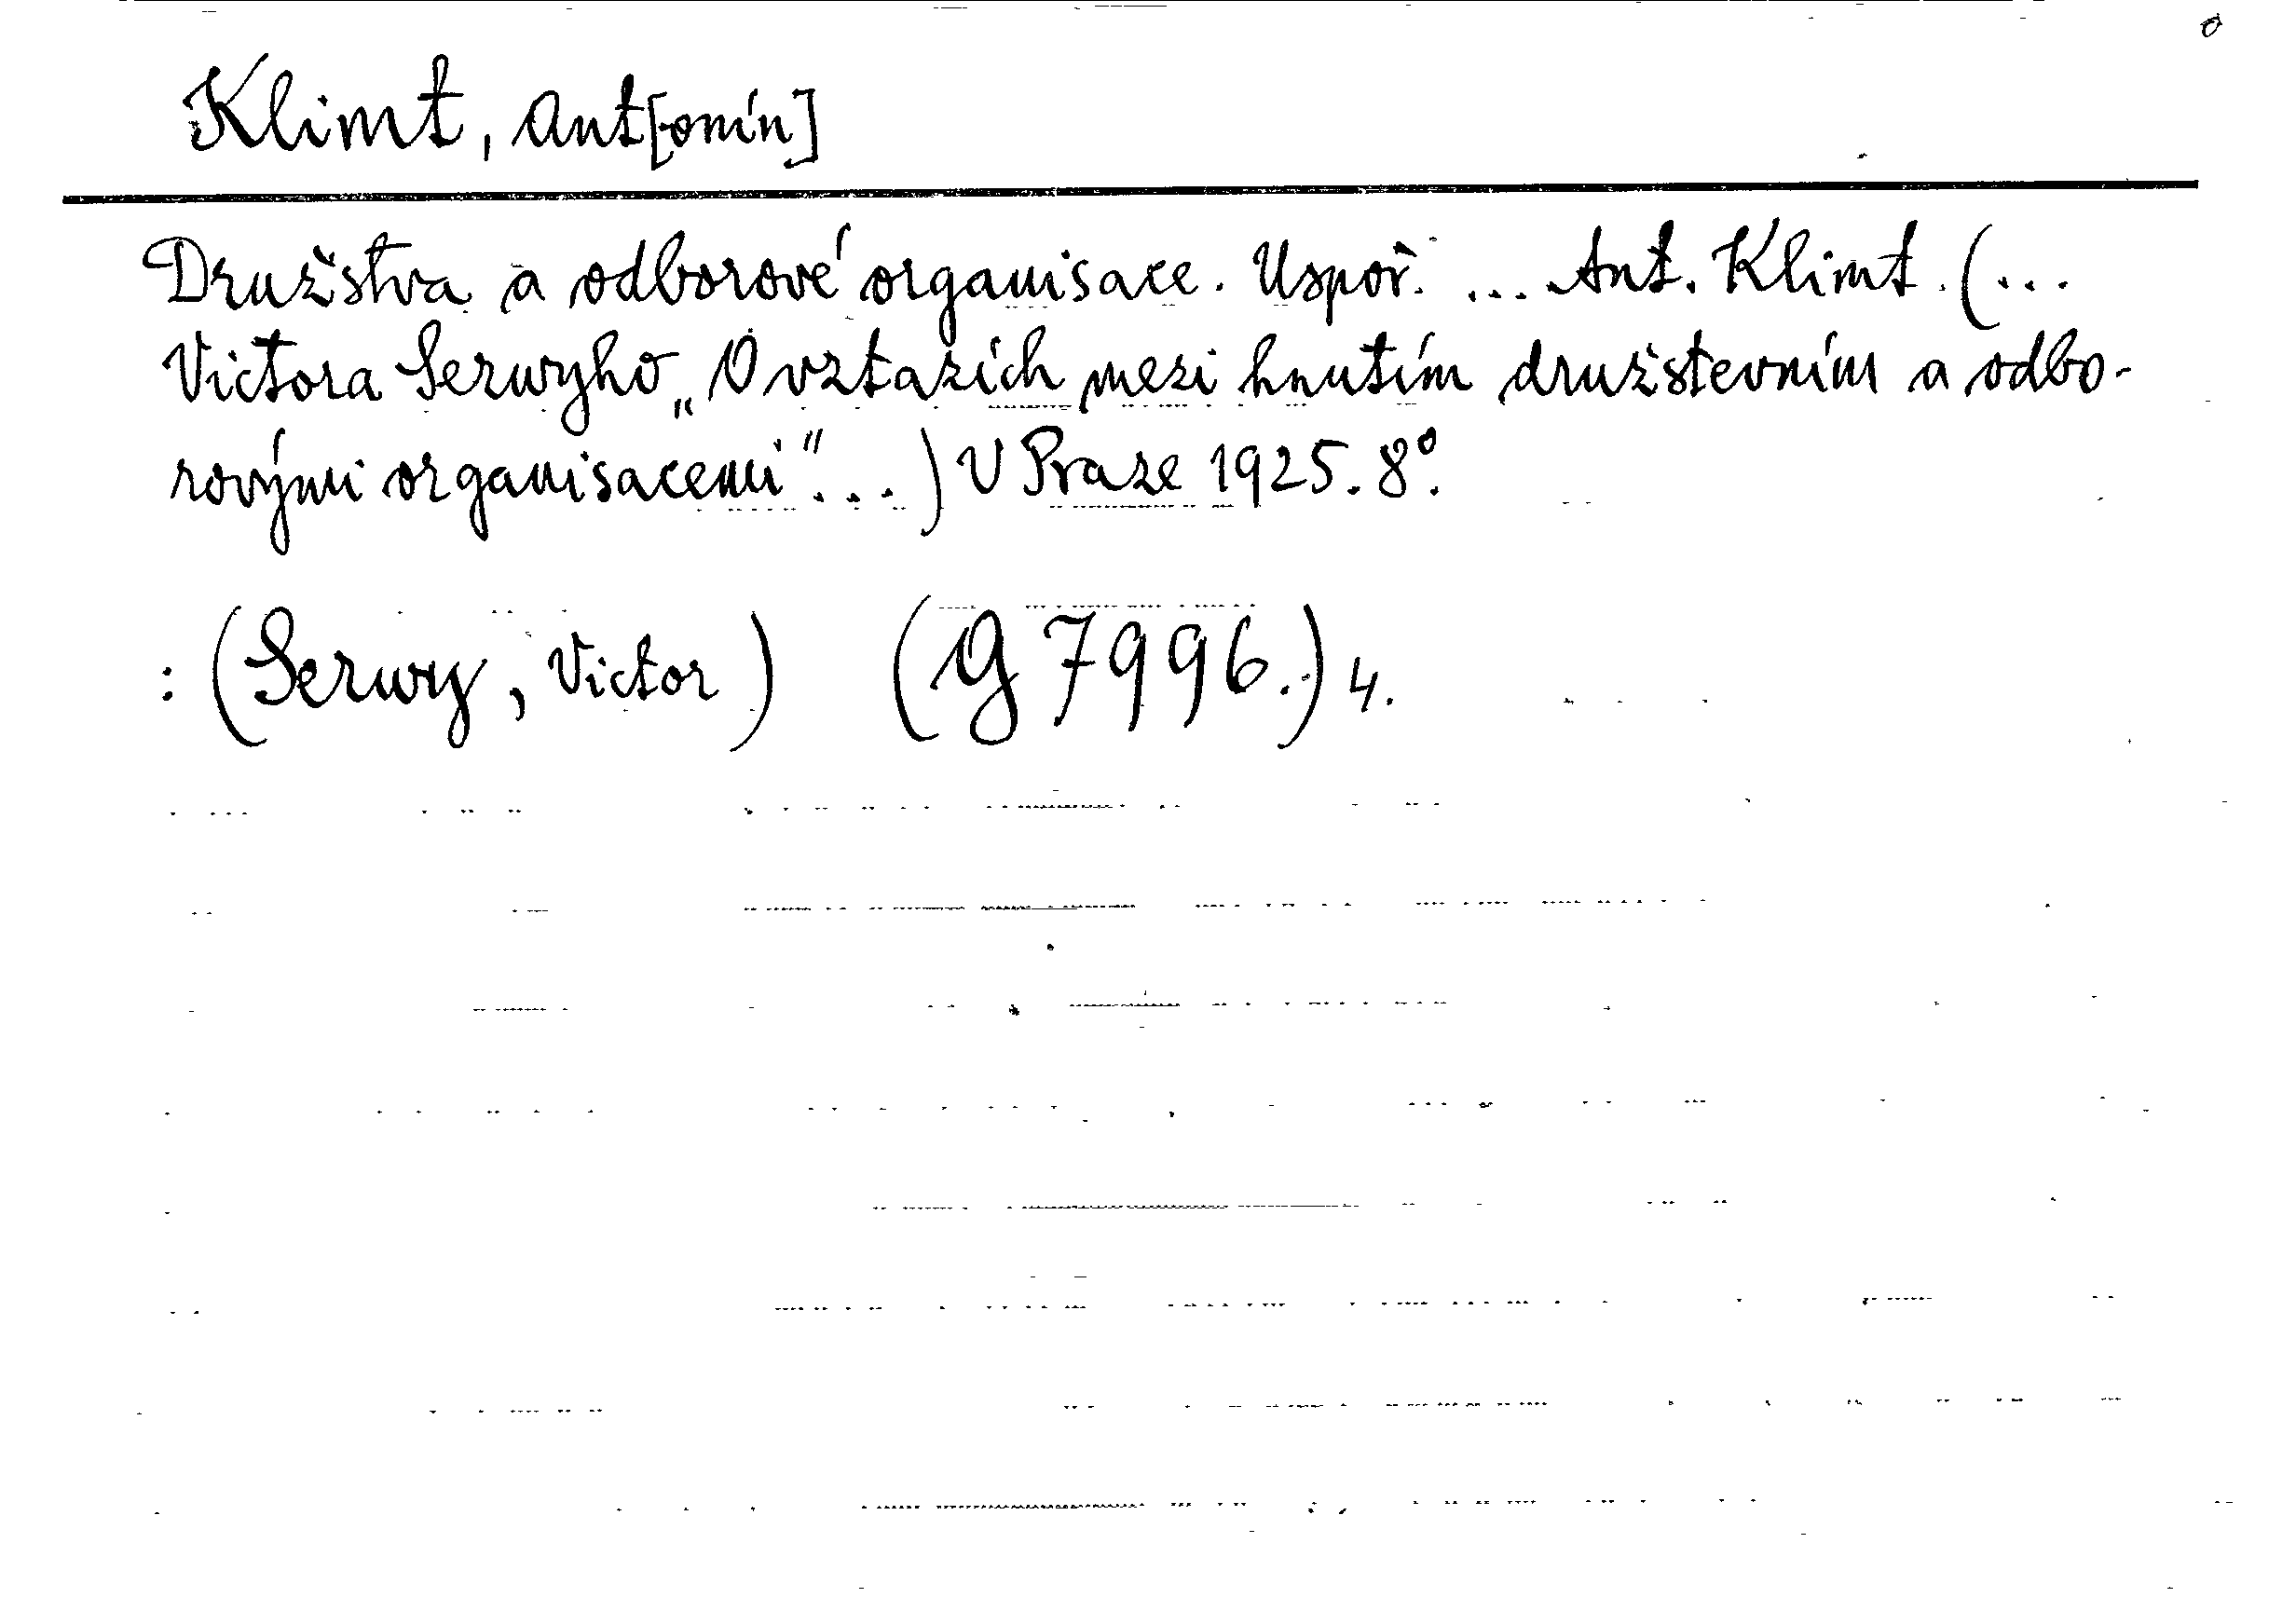 Klimt, Ant[onín]
Družstva a odborové organisace. Uspoř. ... Ant. Klimt. (...
Victora Serwyho „O vztazích mezi hnutím družstevním a odbo-
rovými organisacemi"...) V Praze 1925. 8°.
: (Serwy, Victor) (G 7996.) 4.